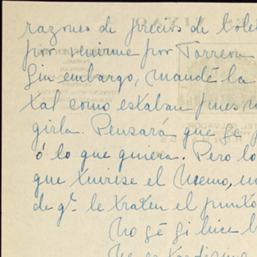 razones de precios de bole
por venirme por Torreon
Sin embargo, mandé la
tal como estaban pues n
girla. Pensará que se
ó lo que quiera. Pero lo
que tuviese el memo, un
de gº le traten el punto
No sé si hice b